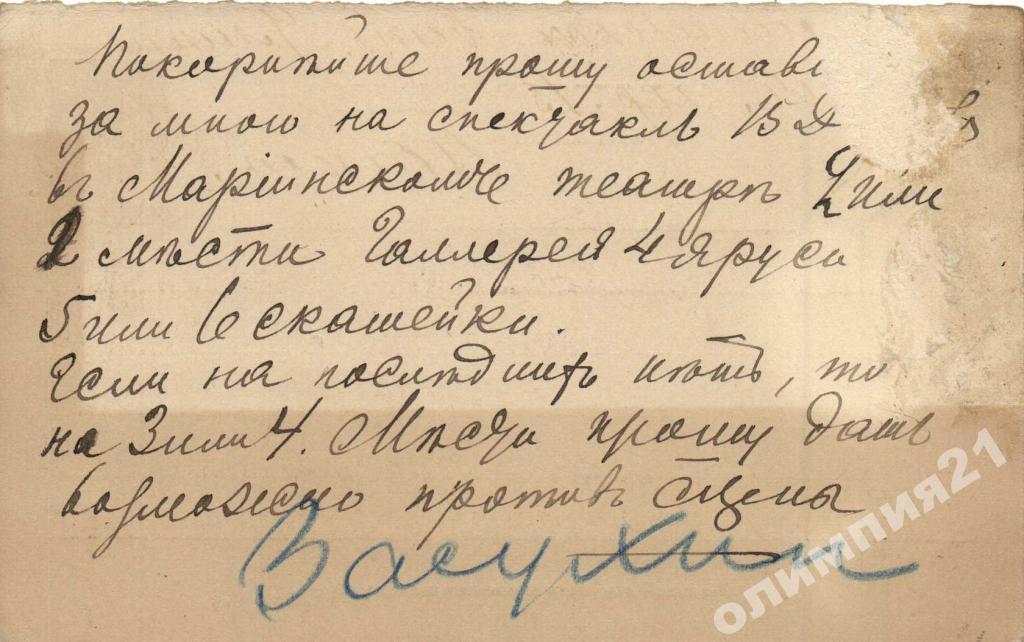 Покорнѣйше прошу остав
за мною на спектакль 15 Д
въ Маріинскомъ театрѣ 2 или
мѣста Галлереи 4 яруса
5 или 6 скамейки.
Если на послѣднихъ нѣтъ, то
на 3 или 4. Мѣста прошу дать
возможно противъ сцены
Васухин
олимпия21